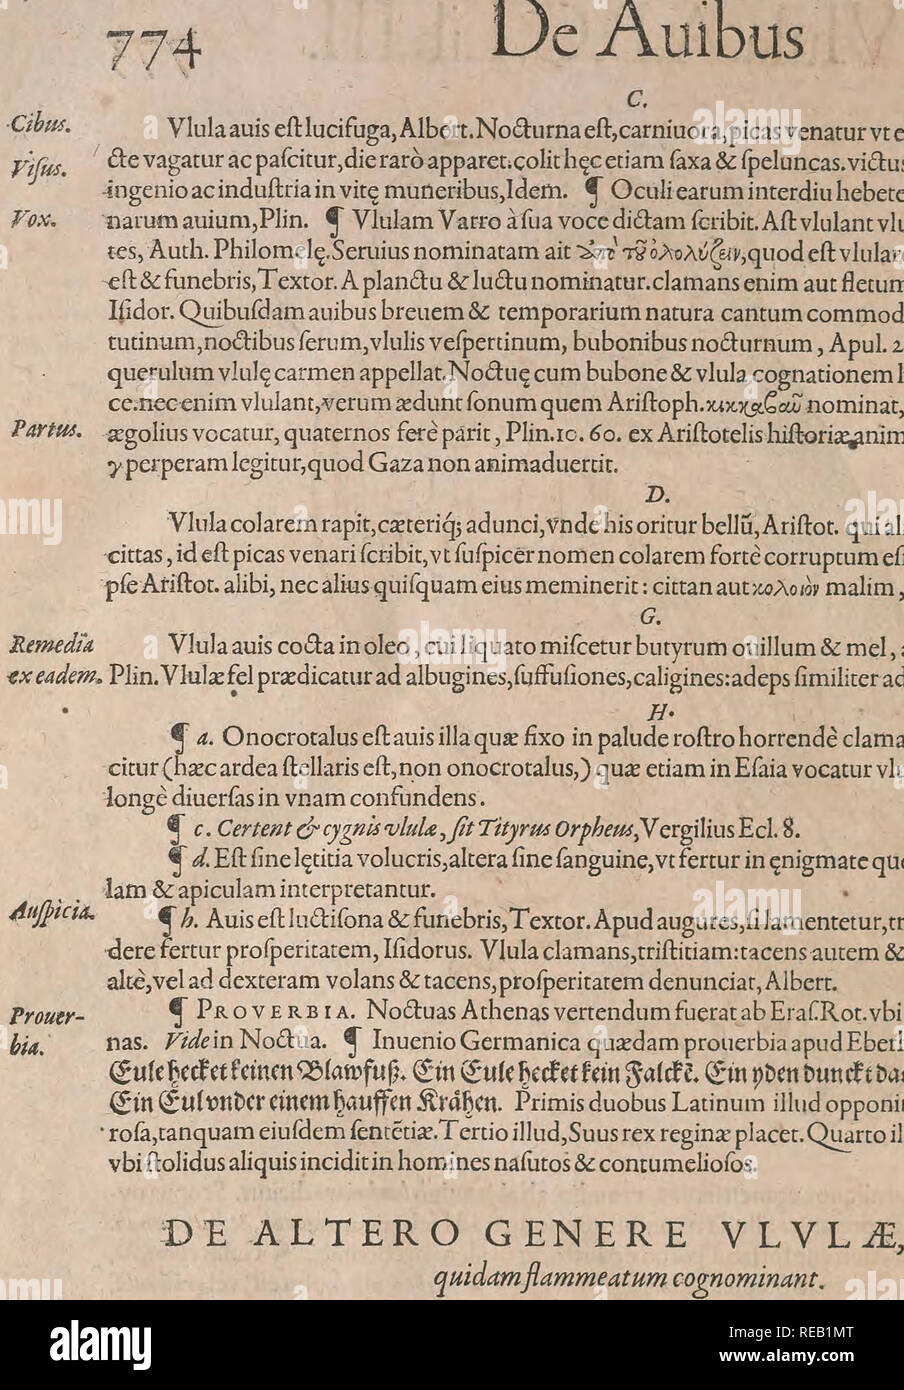 774 De Auibus
C.
Cibus. Vlula auis eſt lucifuga, Albert. Nocturna eſt, carniuora, picas venatur vt e
Viſus. cte vagatur ac paſcitur, die rarò apparet. colit hęc etiam ſaxa & ſpeluncas. victu
ingenio ac induſtria in vitę muneribus, Idem. ¶ Oculi earum interdiu hebete
Vox. narum auium, Plin. ¶ Vlulam Varro à ſua voce dictam ſcribit. Aſt vlulant vlu
tes, Auth. Philomelę. Seruius nominatam ait ἀπὸ τοῦ ὀλολύζειν, quod eſt vlular
eſt & funebris, Textor. A planctu & luctu nominatur. clamans enim aut fletum
Iſidor. Quibuſdam auibus breuem & temporarium natura cantum commod
tutinum, noctibus ſerum, vlulis veſpertinum, bubonibus nocturnum, Apul. 2
querulum vlulę carmen appellat. Noctuę cum bubone & vlula cognationem
ce. nec enim vlulant, verum ædunt ſonum quem Ariſtoph. κικκαβαῦ nominat,
Partus. ægolius vocatur, quaternos ferè parit, Plin. 10. 60. ex Ariſtotelis hiſtoriæ anim
γ perperam legitur, quod Gaza non animaduertit.
D.
Vlula colarem rapit, cæteriq́; adunci, vnde his oritur bellũ, Ariſtot. qui al
cittas, id eſt picas venari ſcribit, vt ſuſpicer nomen colarem fortè corruptum eſ
pſe Ariſtot. alibi, nec alius quiſquam eius meminerit: cittan aut κολοιὸν malim,
G.
Remedia Vlula auis cocta in oleo, cui liquato miſcetur butyrum ouillum & mel,
ex eadem. Plin. Vlulæ fel prædicatur ad albugines, ſuffuſiones, caligines: adeps ſimiliter ad
H.
¶ a. Onocrotalus eſt auis illa quæ fixo in palude roſtro horrendè clama
citur (hæc ardea ſtellaris eſt, non onocrotalus,) quæ etiam in Eſaia vocatur vl
longè diuerſas in vnam confundens.
¶ c. Certent & cygnis vlulæ, ſit Tityrus Orpheus, Vergilius Ecl. 8.
¶ d. Eſt ſine lętitia volucris, altera ſine ſanguine, vt fertur in ęnigmate que
lam & apiculam interpretantur.
Auſpicia. ¶ h. Auis eſt luctiſona & funebris, Textor. Apud augures, ſi lamentetur, tr
dere fertur proſperitatem, Iſidorus. Vlula clamans, triſtitiam: tacens autem &
altè, vel ad dexteram volans & tacens, proſperitatem denunciat, Albert.
Prouer- ¶ PROVERBIA. Noctuas Athenas vertendum fuerat ab Eraſ. Rot. vbi
bia. nas. Vide in Noctua. ¶ Inuenio Germanica quædam prouerbia apud Eberl
Eule hecket keinen Blawfuß. Ein Eule hecket kein Falckē. Ein yden dunckt da
Ein Eul vnder einem hauffen Krähen. Primis duobus Latinum illud opponi
roſa, tanquam eiuſdem ſentētiæ. Tertio illud, Suus rex reginæ placet. Quarto il
vbi ſtolidus aliquis incidit in homines naſutos & contumelioſos.
DE ALTERO GENERE VLVLÆ,
quidam flammeatum cognominant.
alamy
Image ID: REB1MT
www.alamy.com